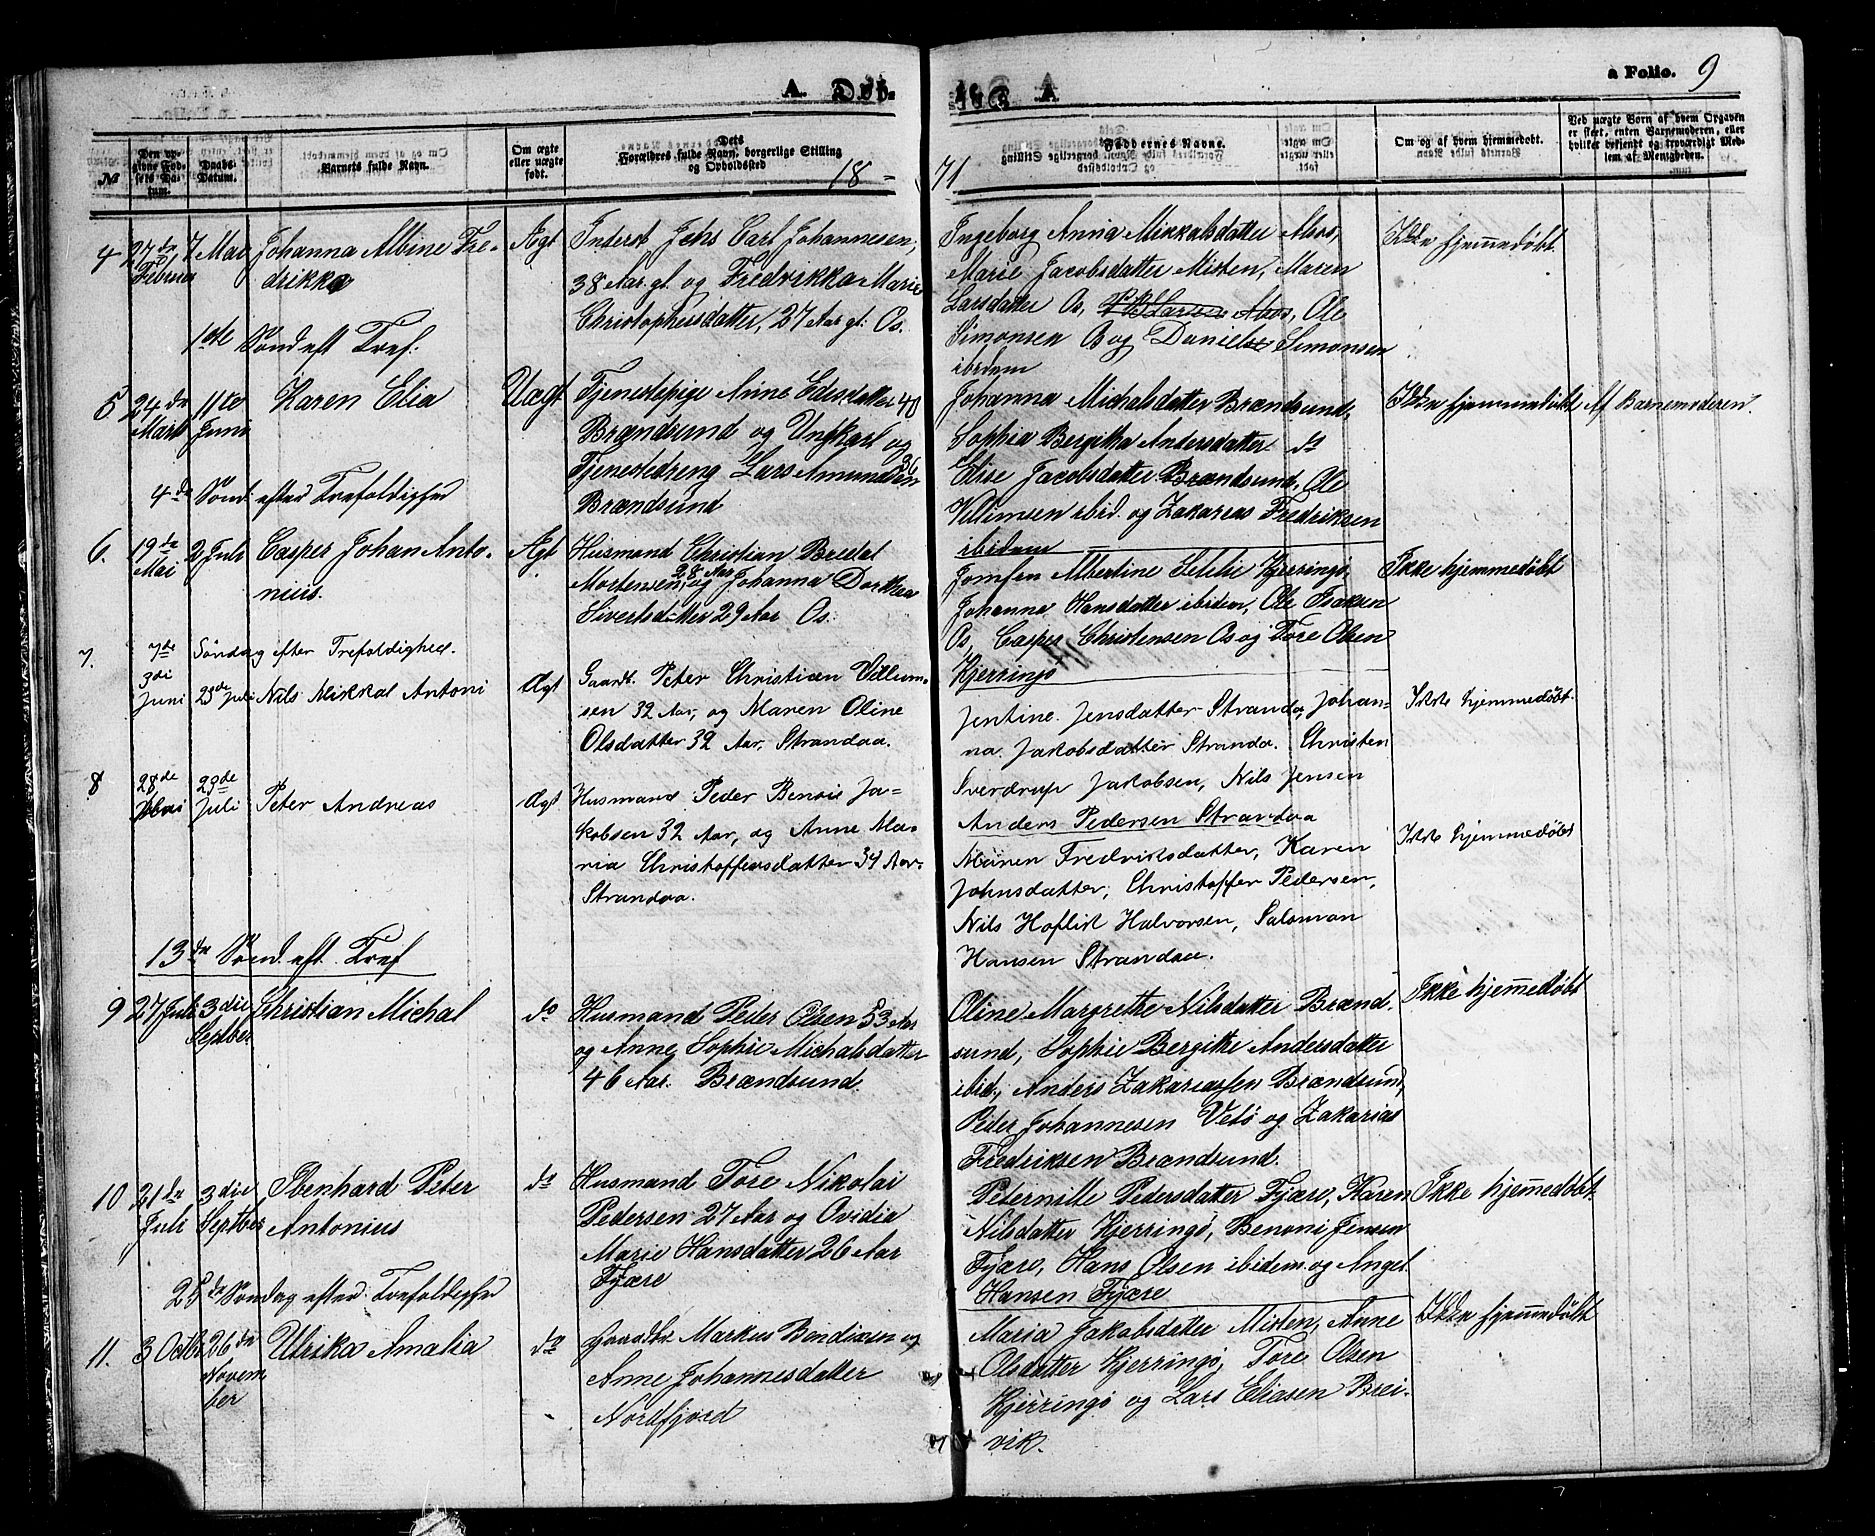 A. Døb.
a Folio. 9
№
Den op-
givne Fød-
sels Da-
tum.
Daabs-
Datum.
Barnets fulde Navn.
Om ægte
eller uægte
født.
Dets
Forældres fulde Navn, borgerlige Stilling
og Opholdssted
18 = 71
Faddernes Navne.
Om og af hvem hjemmedøbt.
Ved uægte Børn af hvem Opgaven
er skeet, enten Barnemoderen, eller
hvilket bekjendt og troværdigt Med-
lem af Menigheden.
4 27de Februar 7 Mai Johanna Albine Fre-
drikke
Ægt
Inderst Jens Carl Johannesen,
38 Aar gl. og Fredrikka Marie
Christophersdatter, 27 Aar gl: Os.
Ingeborg Anna Mikkalsdatter Alvos,
Marie Jacobsdatter Misten, Maren
Larsdatter Os, Ole
Simonsen Os og Daniel Simonsen
ibidem
Ikke hjemmedøbt.
1ste Sønd eft Tref:
5 24de Marts 11te Juni Karen Elia
Uægt
Tjenestepige Anne Edisdatter 40
Brændsund og Ungkarl og
Tjenestedreng Lars Amundsen 36
Brændsund
Johanna Michalsdatter Brændsund,
Sophia Bergitha Andersdatter do
Elise Jacobsdatter Brændsund, Ole
Villumsen ibid. og Zakarias Fredriksen
ibidem
Ikke hjemmedøbt
Af Barnemoderen.
4de Sønd. efter Trefoldighed
6. 19de Mai 2 Juli Casper Johan Anto-
nius.
Ægt
Husmand Christian Bredal
Mortensen, 28 Aar og Johanna Dorthea
Sivertsdatter 29 Aar Os.
Jomfru Albertine Kjerringø,
Johanna Hansdatter ibidem, Ole Isaksen
Os, Casper Christensen Os og Tore Olsen
Kjerringø
Ikke hjemmedøbt
7de Søndag efter Trefoldighed.
7. 3di Juni 23de Juli Nils Mikkal Antoni
Ægt
Gaardb. Peter Christian Villum-
sen 32 Aar, og Maren Oline
Olsdatter 32 Aar, Strandaa.
Jentine Jensdatter Strandaa, Johan-
na Jakobsdatter Strandaa. Christen
Sverdrup Jakobsen, Nils Jensen
Anders Pedersen Strandaa
Ikke hjemmedøbt.
8 28de Mai 23de Juli Peter Andreas
Ægt
Husmand Peder Benoni Ja-
kobsen 32 Aar, og Anne Ma-
ria Christoffersdatter 34 Aar.
Strandaa.
Maren Fredriksdatter, Karen
Johnsdatter, Christoffer Pedersen,
Nils Hoflik Halvorsen, Saloman
Hansen Strandaa.
Ikke hjemmedøbt
13de Sønd. eft. Tref
9 27 Juli 3die Septber Christian Michal
do
Husmand Peder Olsen 53 Aar
og Anne Sophie Michalsdatter
46 Aar. Brændsund.
Oline Margrethe Nilsdatter Brænd-
sund, Sophie Bergithe Andersdatter
ibid., Anders Zakariassen Brændsund,
Peder Johannesen Vetø og Zakarias
Fredriksen Brændsund.
Ikke hjemmedøbt
10 21de Juli 3die Septber Ibenhard Peter
Antonius
do
Husmand Tore Nikolai
Pedersen 27 Aar og Ovidia
Marie Hansdatter 26 Aar
Fjære
Pedernille Pedersdatter Fjære, Karen
Nilsdatter Kjerringø, Benoni Jensen
Fjære, Hans Olsen ibidem og Angel
Hansen Fjære
Ikke hjemmedøbt.
25de Søndag efter Trefoldighed
11. 3 Octbr 26de Novem-
ber
Ulrika Amalia
do
Gaardbr. Markus Bendixen og
Anne Johannesdatter
Nordfjord
Maria Jakobsdatter Misten, Anne
Olsdatter Kjerringø, Tore Olsen
Kjerringø og Lars Eliasen Brei-
vik.
Ikke hjemmedøbt